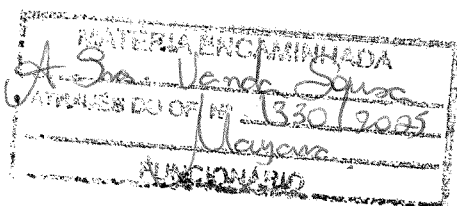 MATÉRIA ENCAMINHADA
A Sra. Vanda Sousa
ATRAVÉS DO OF. Nº 1330/2025
Mayara
FUNCIONÁRIO